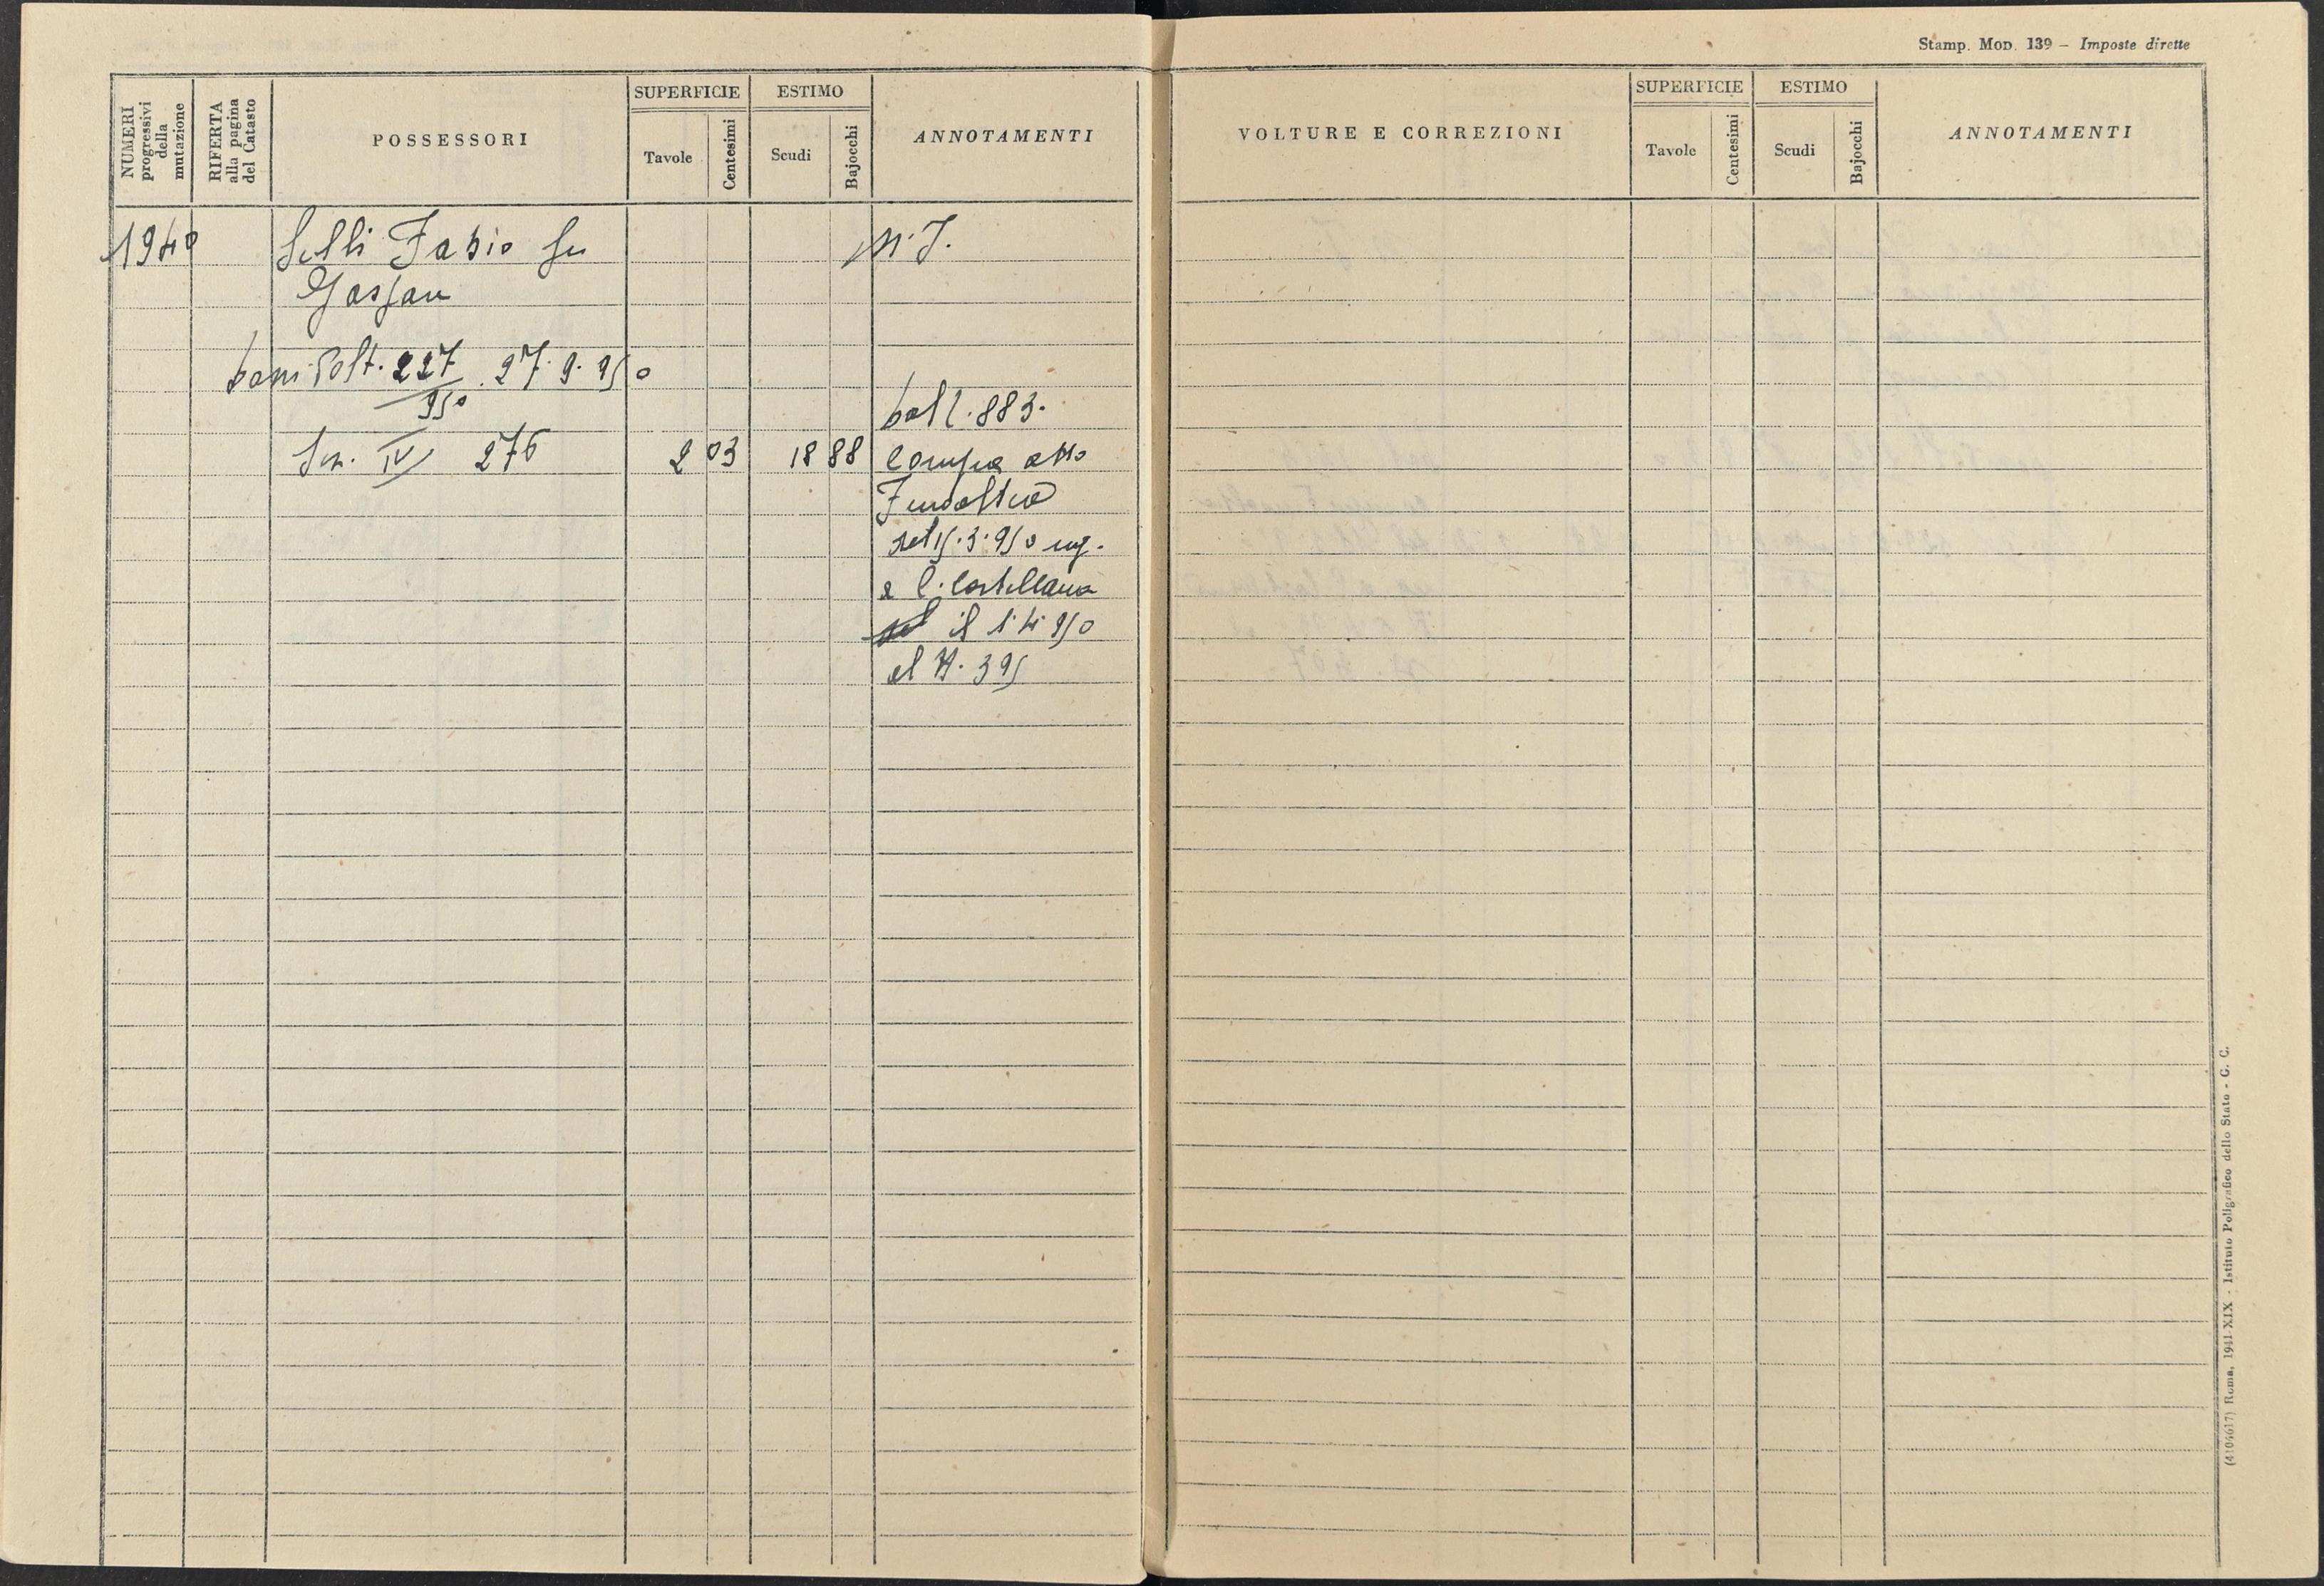 Stamp. Mod. 139 – Imposte dirette
NUMERI progressivi della mutazione
RIFERTA alla pagina del Catasto
POSSESSORI
SUPERFICIE
Tavole
Centesimi
ESTIMO
Scudi
Bajocchi
ANNOTAMENTI
VOLTURE E CORREZIONI
SUPERFICIE
Tavole
Centesimi
ESTIMO
Scudi
Bajocchi
ANNOTAMENTI
1940 Selli Fabio fu
N. I.
227 27.9.950
950
883.
Sez. IV 276 2 03 18 88 Compra atto
del 15.3.950 reg.
a C. Castellana
il 1.4.950
al N. 395
(4104617) Roma, 1941-XIX - Istituto Poligrafico dello Stato - G. C.